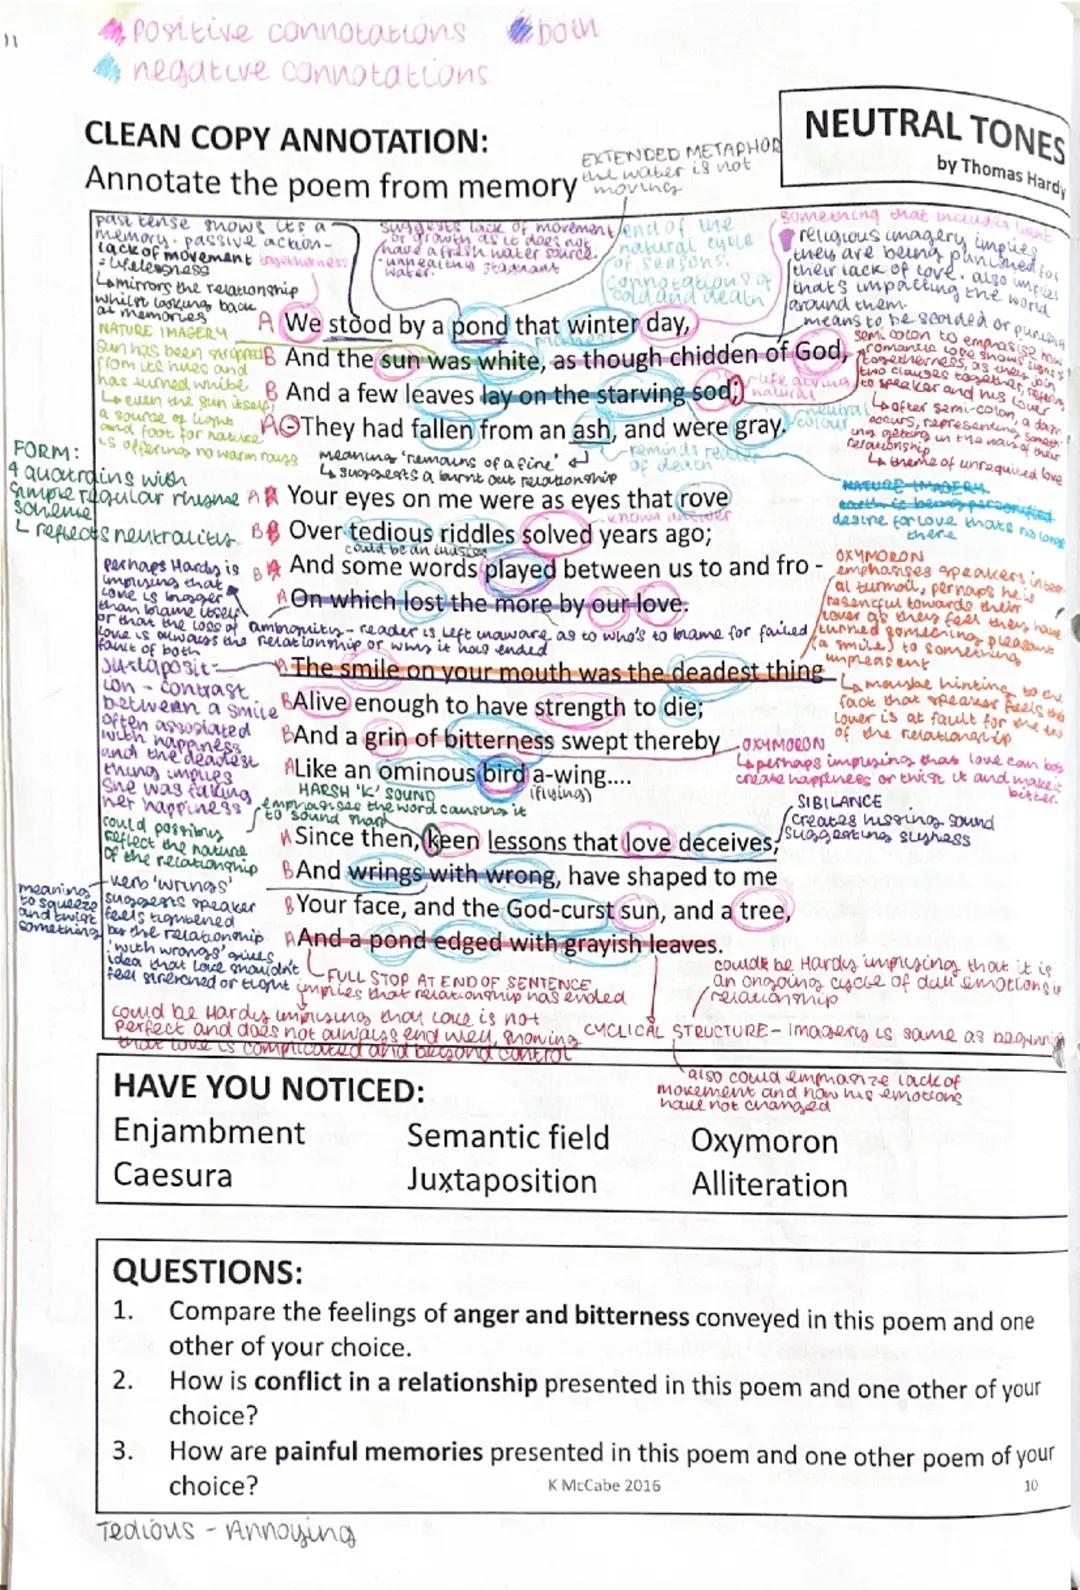 11
positive connotations both
negative connotations
CLEAN COPY ANNOTATION:
Annotate the poem from memory
NEUTRAL TONES
by Thomas Hardy
EXTENDED METAPHOR
the water is not
moving
past tense shows its a
memory. passive action-
lack of movement togetherness
= lifelessness
↳ mirrors the relationship
whilst looking back
at memories
suggests lack of movement
or growth as it does not
have a fresh water source.
- unhealthy stagnant
water.
end of the
natural cycle
of seasons.
connotations of
cold and death
something that includes light
religious imagery implies
they are being punished for
their lack of love. also implies
that's impacting the world
around them.
means to be scolded or punish
NATURE IMAGERY
Sun has been stripped
from its hues and
has turned white
↳ even the sun itself,
a source of light
and food for nature
is offering no warm rays
A We stood by a pond that winter day,
B And the sun was white, as though chidden of God,
B And a few leaves lay on the starving sod;
A They had fallen from an ash, and were gray.
life giving
natural
neutral
colour
reminds reader
of death
meaning 'remains of a fire'
↳ suggests a burnt out relationship
semi colon to emphasise how
romantic love shows signs
togetherness, as they join
two clauses together, referring
to speaker and his lover
↳ after semi-colon, a dash
occurs, representing someth
ing getting in the way of their
relationship
↳ theme of unrequited love
NATURE IMAGERY
earth is being personified
desire for love thats no longer
there
FORM:
4 quatrains with
simple regular rhyme
scheme
↳ reflects neutrality
A Your eyes on me were as eyes that rove
known answer
B Over tedious riddles solved years ago;
could be an illusion
B And some words played between us to and fro -
A On which lost the more by our love.
perhaps Hardy is
implying that
love is bigger
than blame itself
or that the loss of
love is always the
fault of both
ambiguity - reader is left unaware as to who's to blame for failed
relationship or why it has ended
OXYMORON
emphasises speakers inter
al turmoil, perhaps he is
resentful towards their
lover as they feel they have
turned something pleasant
(a smile) to something
unpleasent
↳ maybe hinting to the
fact that speaker feels the
lover is at fault for the end
of the relationship
Juxtaposit-
ion - contrast
between a smile
often assosiated
with happiness
and the deadest
thing implies
she was faking
her happiness
A The smile on your mouth was the deadest thing
B Alive enough to have strength to die;
B And a grin of bitterness swept thereby
A Like an ominous bird a-wing....
(flying)
OXYMORON
↳ perhaps implying that love can both
create happiness or twist it and make it
bitter.
HARSH 'K' SOUND
emphasises the word causing it
to sound sharp
SIBILANCE
creates hissing sound
suggesting slyness
could possibly
reflect the nature
of the relationship
A Since then, keen lessons that love deceives,
B And wrings with wrong, have shaped to me
B Your face, and the God-curst sun, and a tree,
A And a pond edged with grayish leaves.
meaning
to squeeze
and twist
something
verb 'wrings'
suggests speaker
feels tightened
by the relationship
'with wrongs' gives
idea that love shouldn't
feel stretched or tight
FULL STOP AT END OF SENTENCE
implies that relationship has ended
could be Hardy implying that love is not
perfect and does not always end well, showing
that love is complicated and beyond control
could be Hardy implying that it is
an ongoing cycle of dull emotions in
relationship
CYCLICAL STRUCTURE - imagery is same as beginning
also could emphasize lack of
movement and how his emotions
have not changed
HAVE YOU NOTICED:
Enjambment Semantic field Oxymoron
Caesura Juxtaposition Alliteration
QUESTIONS:
1. Compare the feelings of anger and bitterness conveyed in this poem and one
other of your choice.
2. How is conflict in a relationship presented in this poem and one other of your
choice?
3. How are painful memories presented in this poem and one other poem of your
choice?
K McCabe 2016
10
Tedious - Annoying